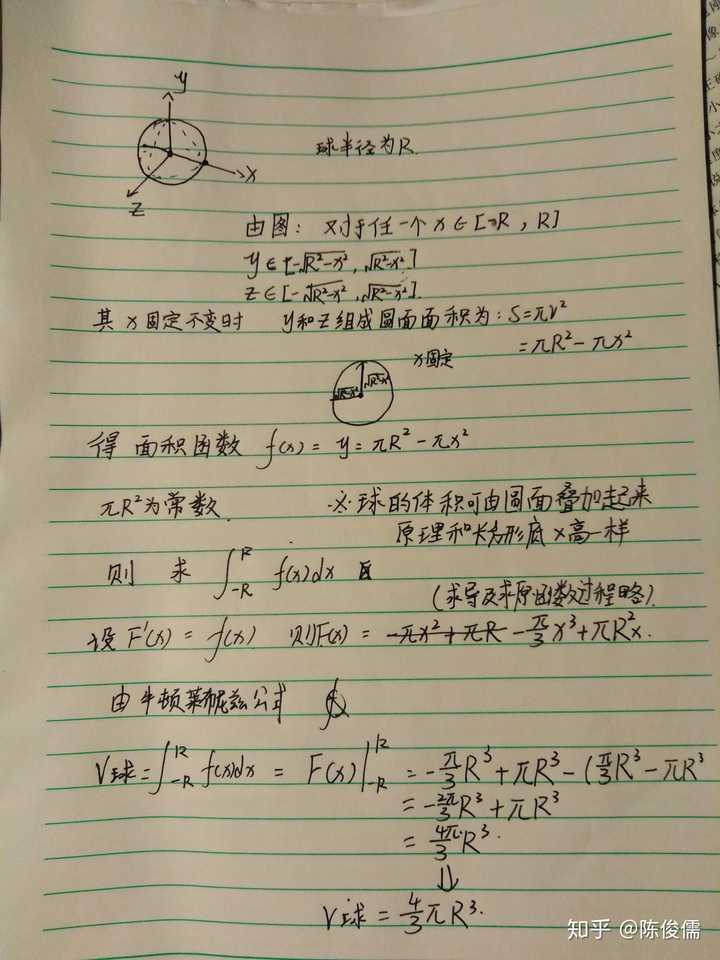 y
球半径为R.
x
z
由图: 对于任一个 x∈[-R, R]
y∈[-√R²-x², √R²-x²]
z∈[-√R²-x², √R²-x²]
其x固定不变时 y和z组成圆面面积为: S=πr²
x固定 =πR²-πx²
√R²-x² √R²-x²
得 面积函数 f(x) = y = πR²-πx²
πR²为常数. ※球的体积可由圆面叠加起来
原理和长方形底×高一样
则 求 ∫_{-R}^{R} f(x)dx
(求导及求原函数过程略)
设 F'(x) = f(x) 则F(x) = -πx²+πR -π/3 x³+πR²x.
由牛顿莱布尼兹公式
V球=∫_{-R}^{R} f(x)dx = F(x)|_{-R}^{R} = -π/3 R³+πR³-(π/3 R³-πR³
= -2π/3 R³+πR³
= 4π/3 R³.
⇓
V球 = 4/3 πR³.
知乎 @陈俊儒